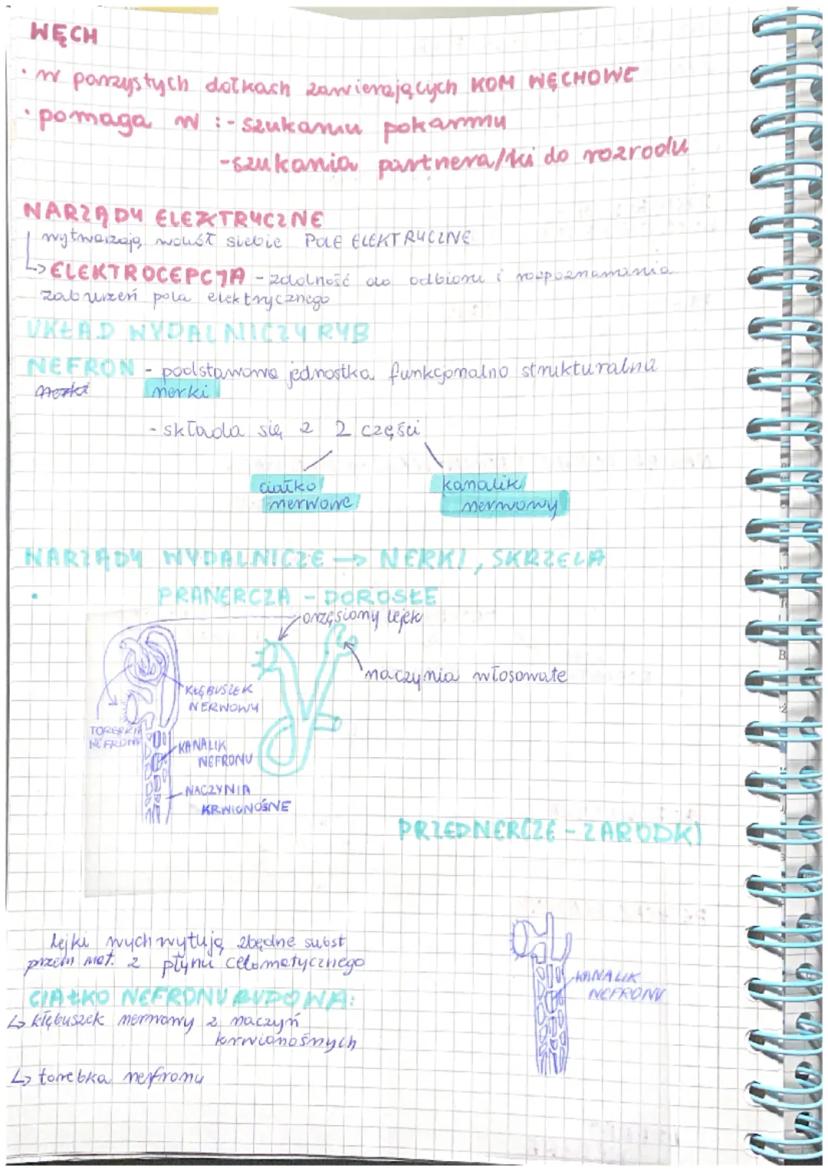 WĘCH
· w parzystych dołkach zawierających KOM WĘCHOWE
· pomaga w : - szukaniu pokarmu
- szukania partnera/ki do rozrodu
NARZĄDY ELEKTRYCZNE
wytwarzają wokół siebie POLE ELEKTRYCZNE
↳ ELEKTROCEPCJA - zdolność do odbioru i rozpoznawania
zaburzeń pola elektrycznego
UKŁAD WYDALNICZY RYB
NEFRON - podstawowa jednostka funkcjonalno strukturalna
nerki nerki
- składa się z 2 części
ciałko kanalik
nerwowe nerwowy
NARZĄDY WYDALNICZE → NERKI, SKRZELA
· PRANERCZA - DOROSŁE
orzęsiony lejek
naczynia włosowate
KŁĘBUSZEK
NERWOWY
TOREBKA
NEFRONU
KANALIK
NEFRONU
NACZYNIA
KRWIONOŚNE
PRZEDNERCZE - ZARODKI
lejki wychwytują zbędne subst
przem mat. z płynu celomatycznego
KANALIK
NEFRONU
CIAŁKO NEFRONU BUDOWA:
↳ kłębuszek nerwowy z naczyń
krwionośnych
↳ torebka nefronu